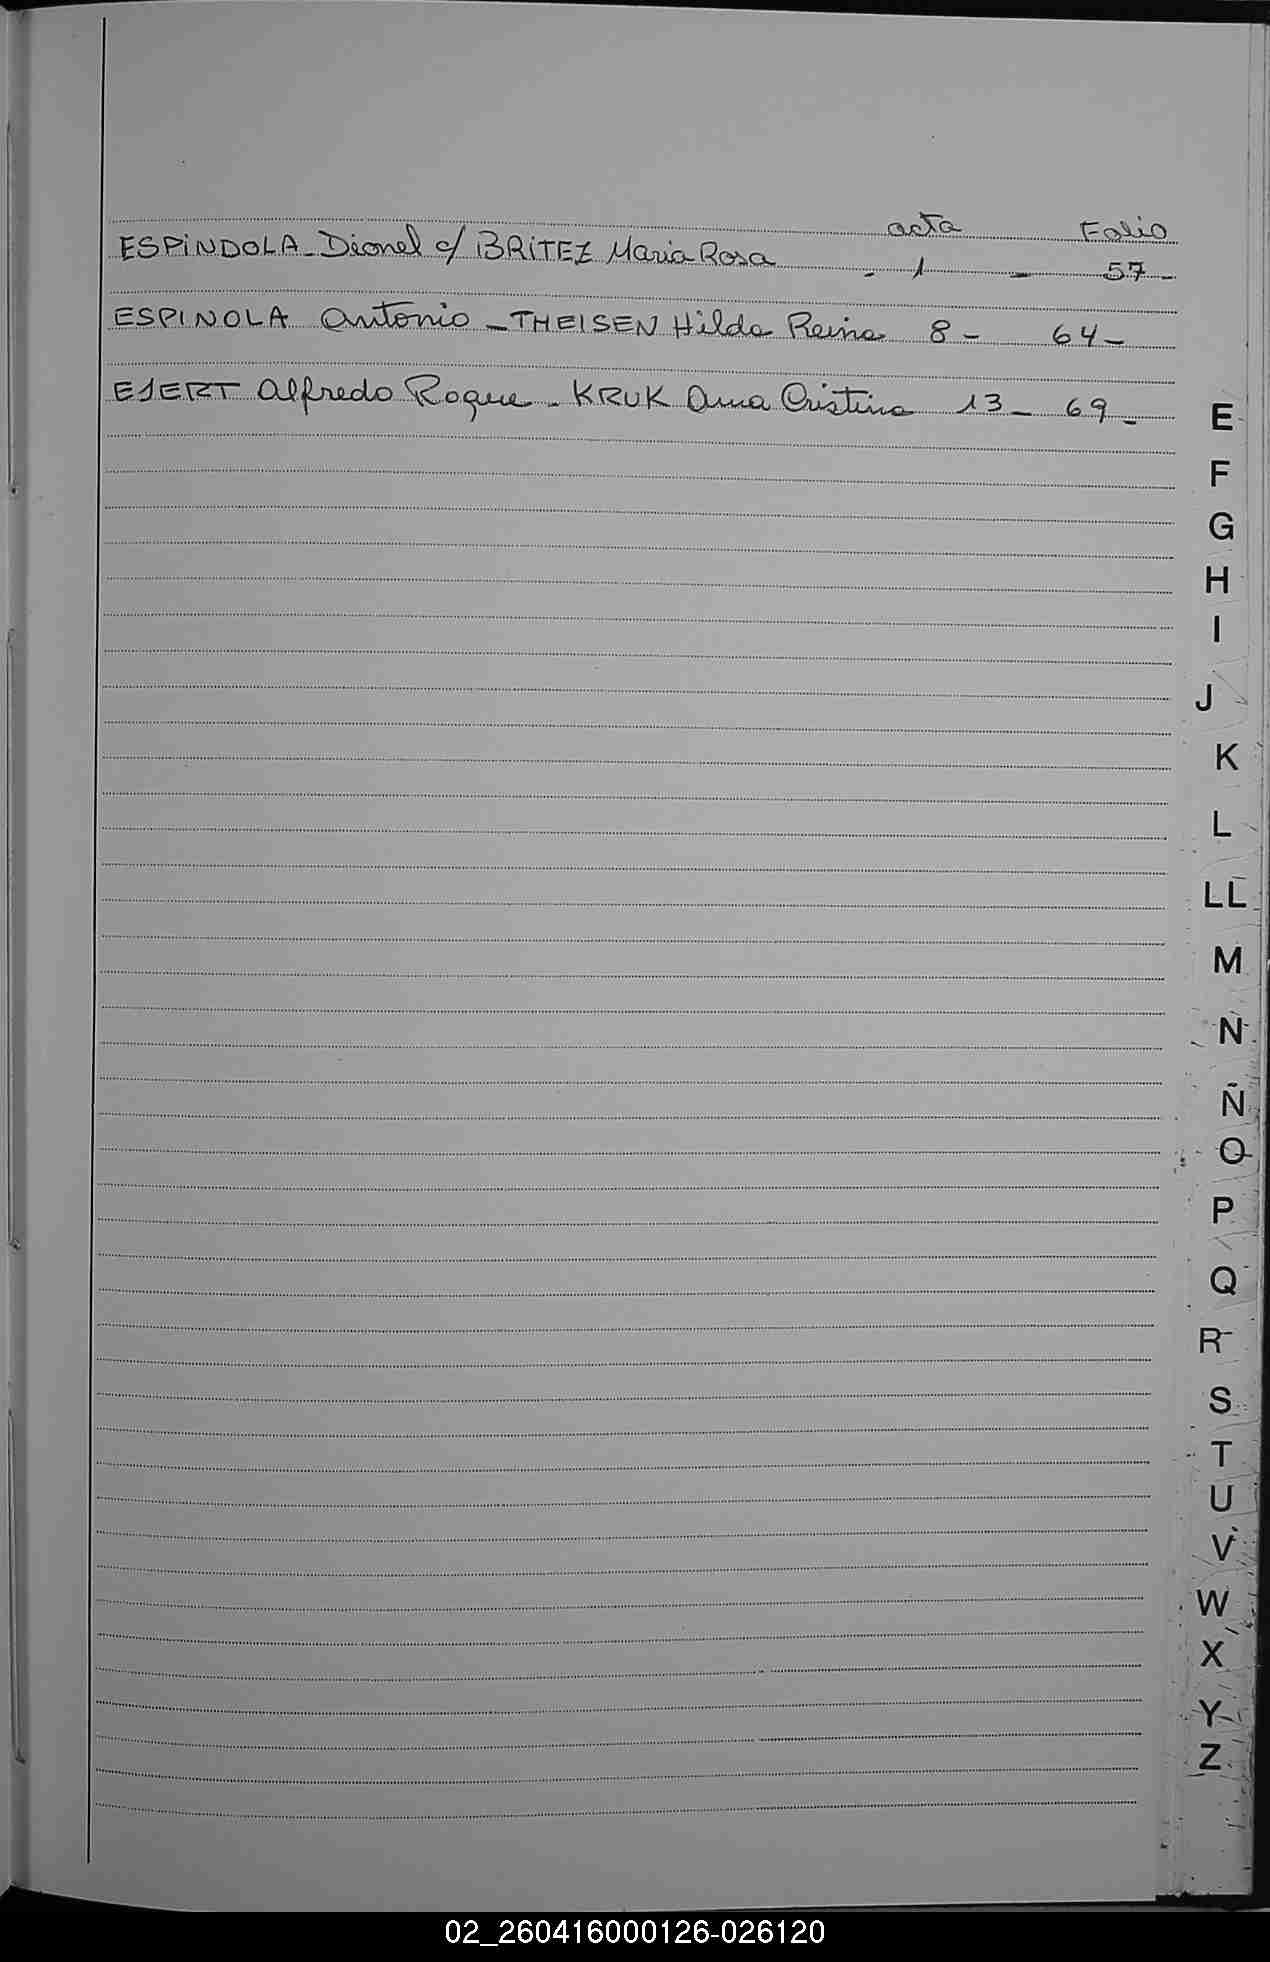 acta Folio
ESPINDOLA - Dionel c/ BRITEZ Maria Rosa - 1 - 57 -
ESPINOLA Antonio - THEISEN Hilda Reina 8 - 64 -
EJERT Alfredo Roque - KRUK Ana Cristina 13 - 69 -
E
F
G
H
I
J
K
L
LL
M
N
Ñ
O
P
Q
R
S
T
U
V
W
X
Y
Z
02_260416000126-026120